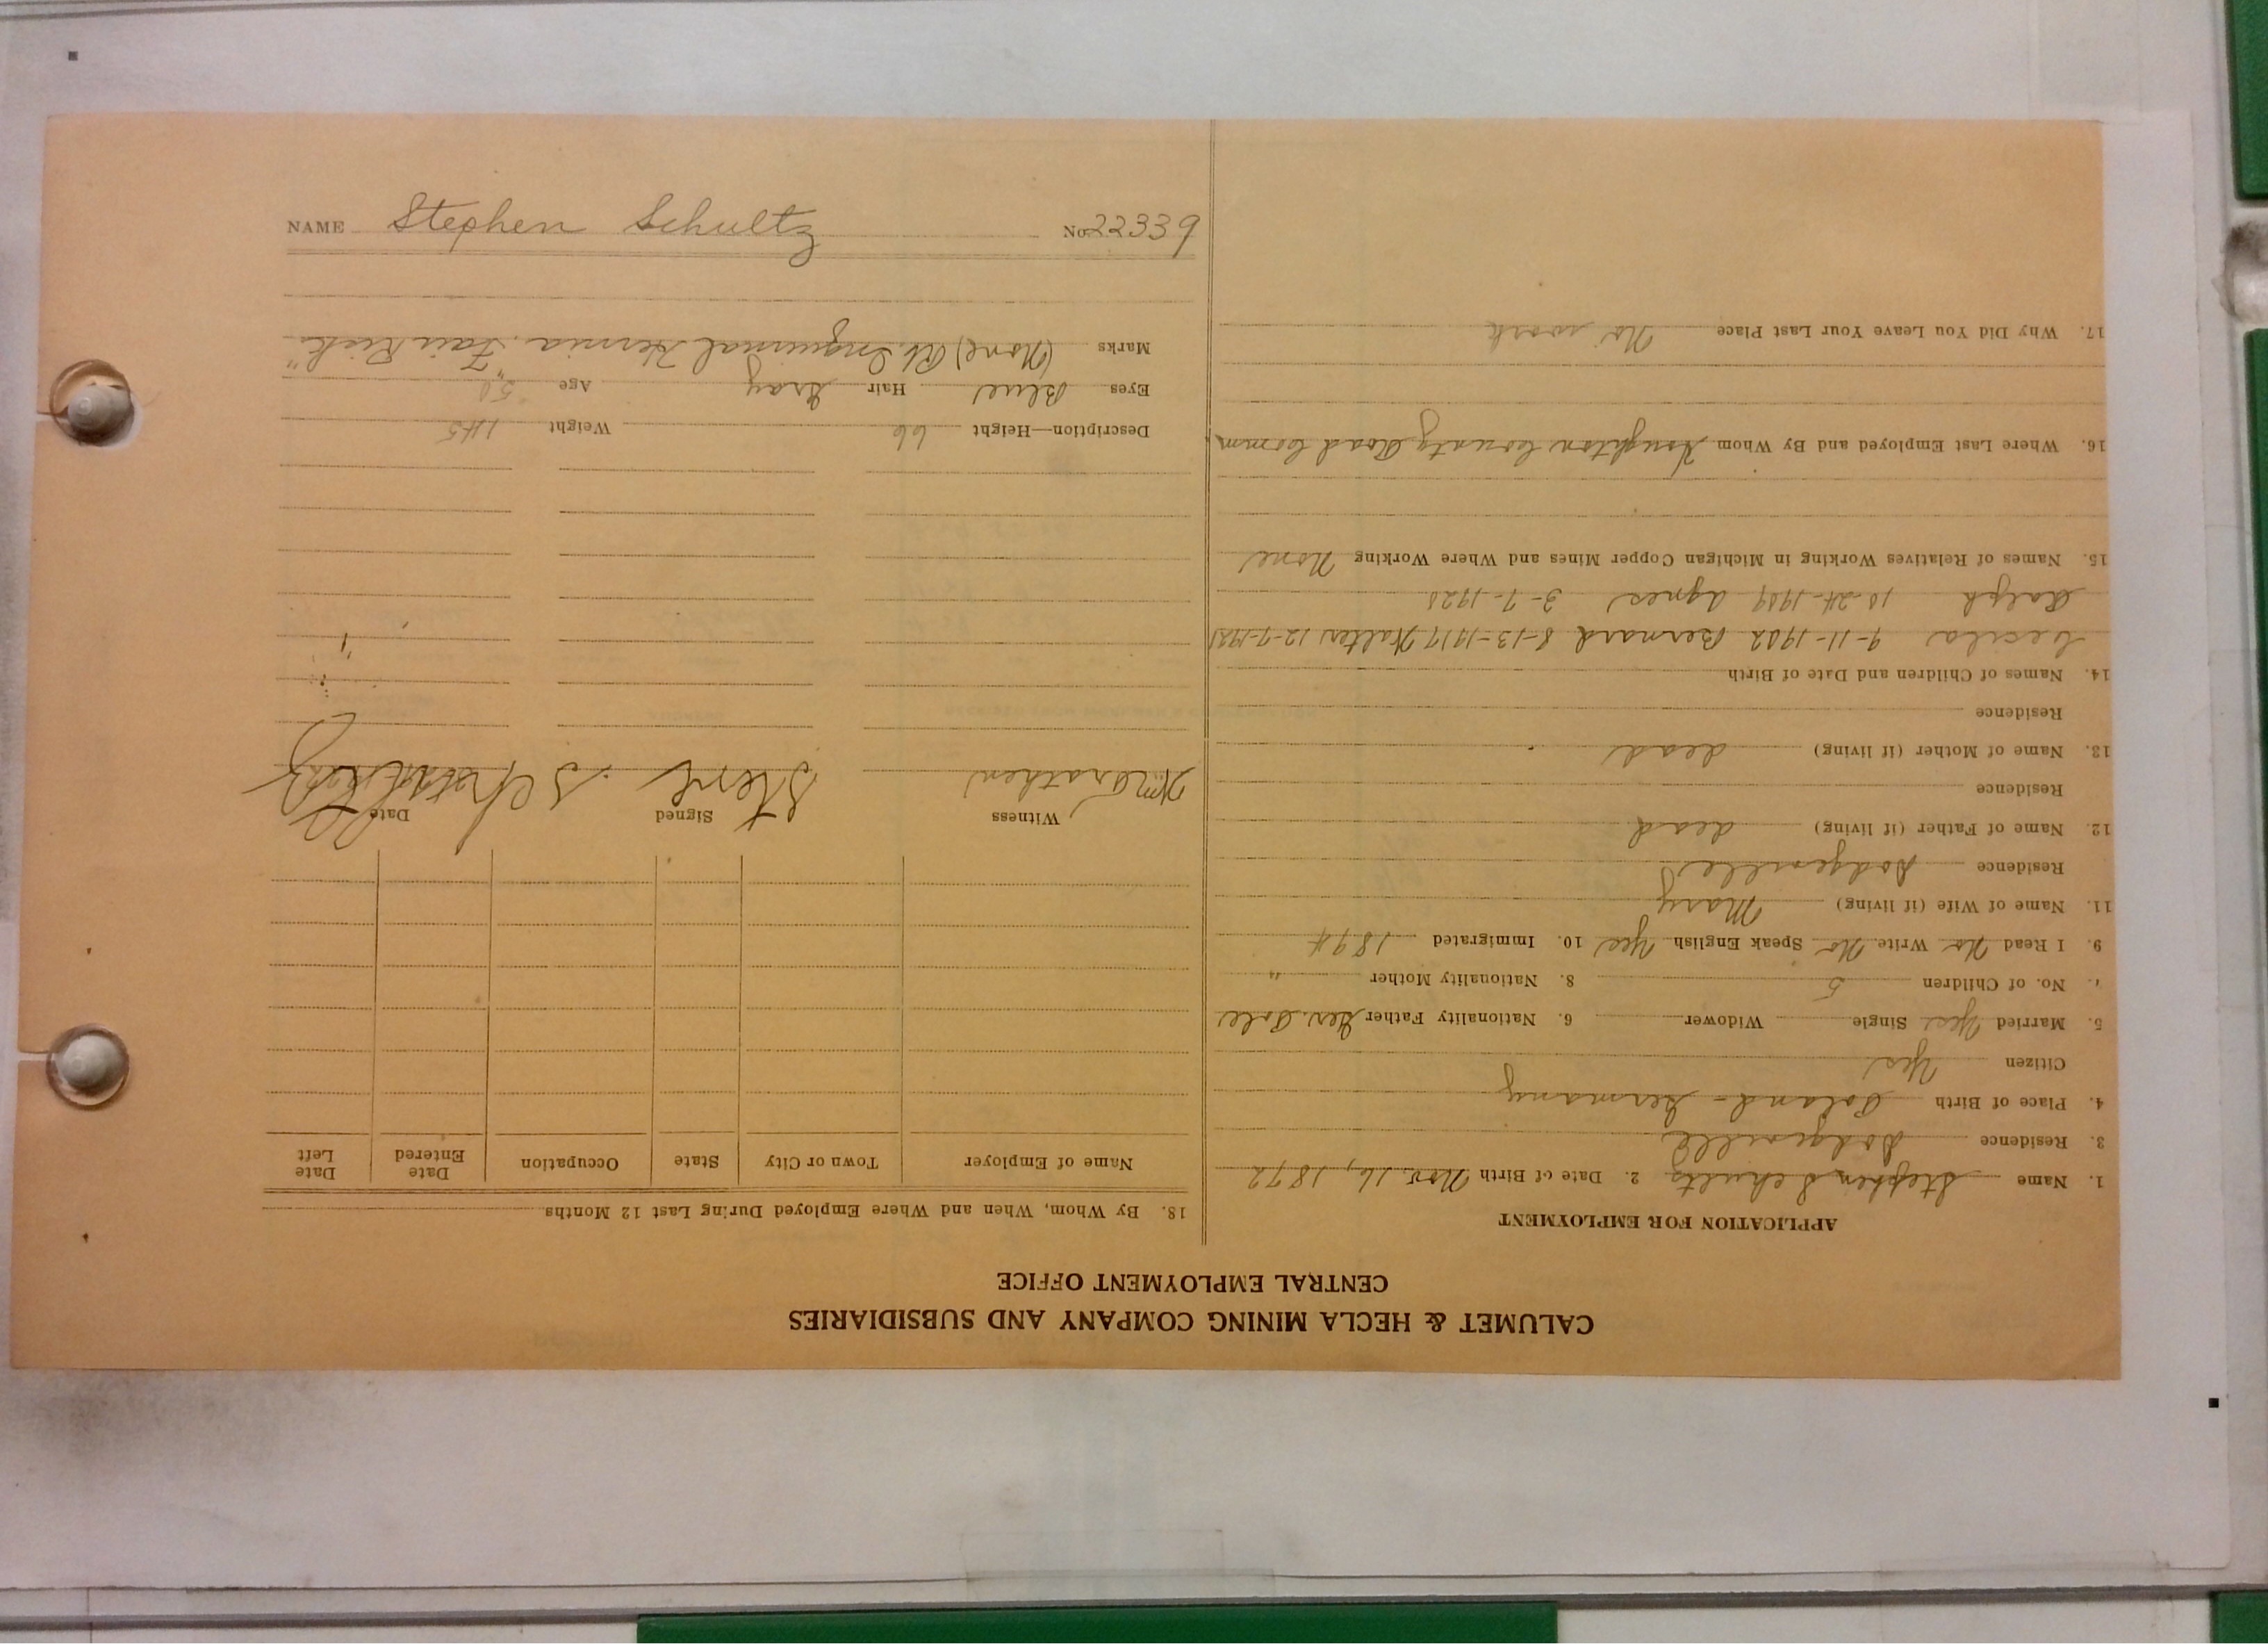 CALUMET & HECLA MINING COMPANY AND SUBSIDIARIES
CENTRAL EMPLOYMENT OFFICE
APPLICATION FOR EMPLOYMENT
1. Name Stephen Schultz 2. Date of Birth Nov. 16, 1872
3. Residence Dodgeville
4. Place of Birth Poland - Germany
Citizen Yes
5. Married Yes Single Widower 6. Nationality Father Ger. Pole
7. No. of Children 5 8. Nationality Mother "
9. I Read No Write No Speak English Yes 10. Immigrated 1894
11. Name of Wife (if living) Mary
Residence Dodgeville
12. Name of Father (if living) dead
Residence
13. Name of Mother (if living) dead
Residence
14. Names of Children and Date of Birth
Cecila 9-11-1902 Bernard 8-13-1917 Walter 12-7-1921
Ralph 10-24-1909 Agnes 3-7-1920
15. Names of Relatives Working in Michigan Copper Mines and Where Working None
16. Where Last Employed and By Whom Houghton County Road Comm.
17. Why Did You Leave Your Last Place No work
18. By Whom, When and Where Employed During Last 12 Months
Name of Employer Town or City State Occupation Date Entered Date Left
Witness Signed Date
Wm
Description—Height 66 Weight 145
Eyes Blue Hair Gray Age
Marks (None) Rt. Inguinal Hernia. "Fair Risk"
NAME Stephen Schultz No. 22339